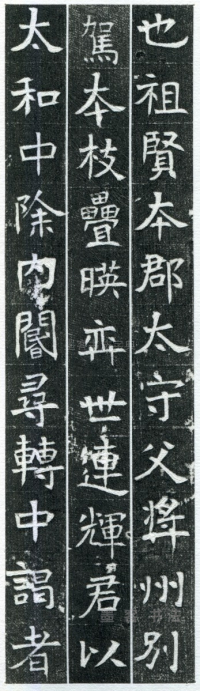 也祖賢本郡太守父將州別
駕本枝疊暎弈世連輝君以
太和中除內閽尋轉中謁者